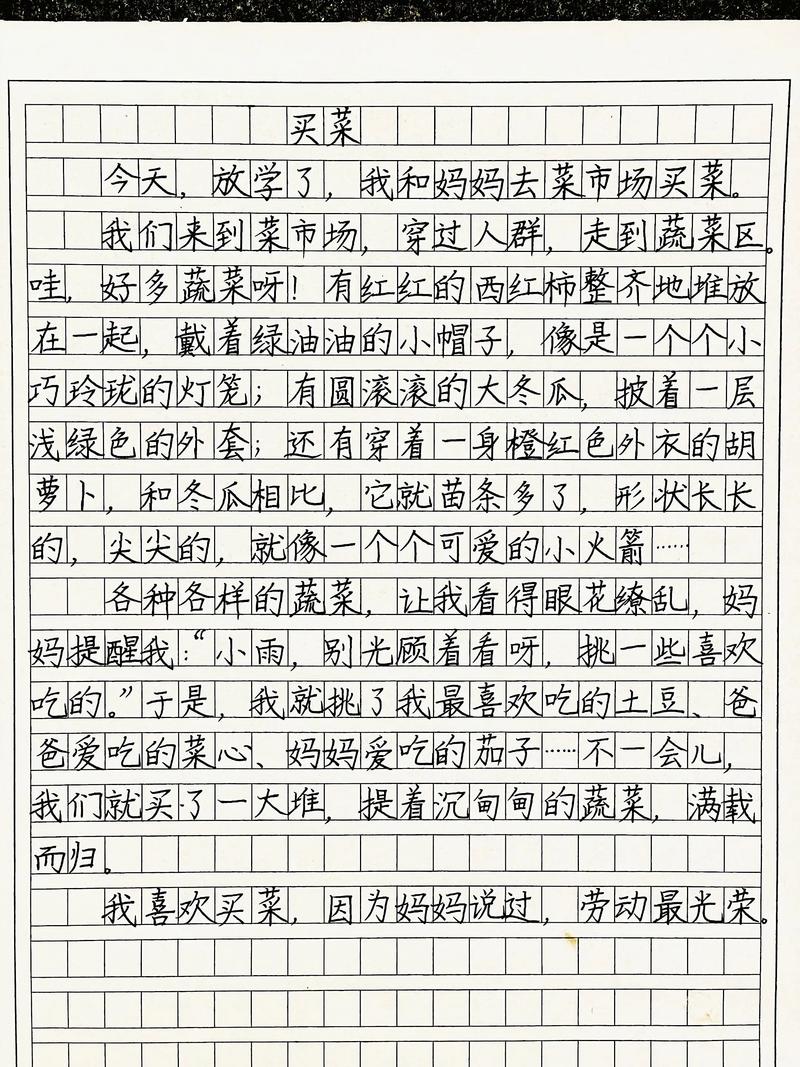 买菜
今天，放学了，我和妈妈去菜市场买菜。
我们来到菜市场，穿过人群，走到蔬菜区。
哇，好多蔬菜呀！有红红的西红柿整齐地堆放
在一起，戴着绿油油的小帽子，像是一个个小
巧玲珑的灯笼；有圆滚滚的大冬瓜，披着一层
浅绿色的外套；还有穿着一身橙红色外衣的胡
萝卜，和冬瓜相比，它就苗条多了，形状长长
的，尖尖的，就像一个个可爱的小火箭……
各种各样的蔬菜，让我看得眼花缭乱，妈
妈提醒我：“小雨，别光顾着看呀，挑一些喜欢
吃的。”于是，我就挑了我最喜欢吃的土豆、爸
爸爱吃的菜心、妈妈爱吃的茄子……不一会儿，
我们就买了一大堆，提着沉甸甸的蔬菜，满载
而归。
我喜欢买菜，因为妈妈说过，劳动最光荣。